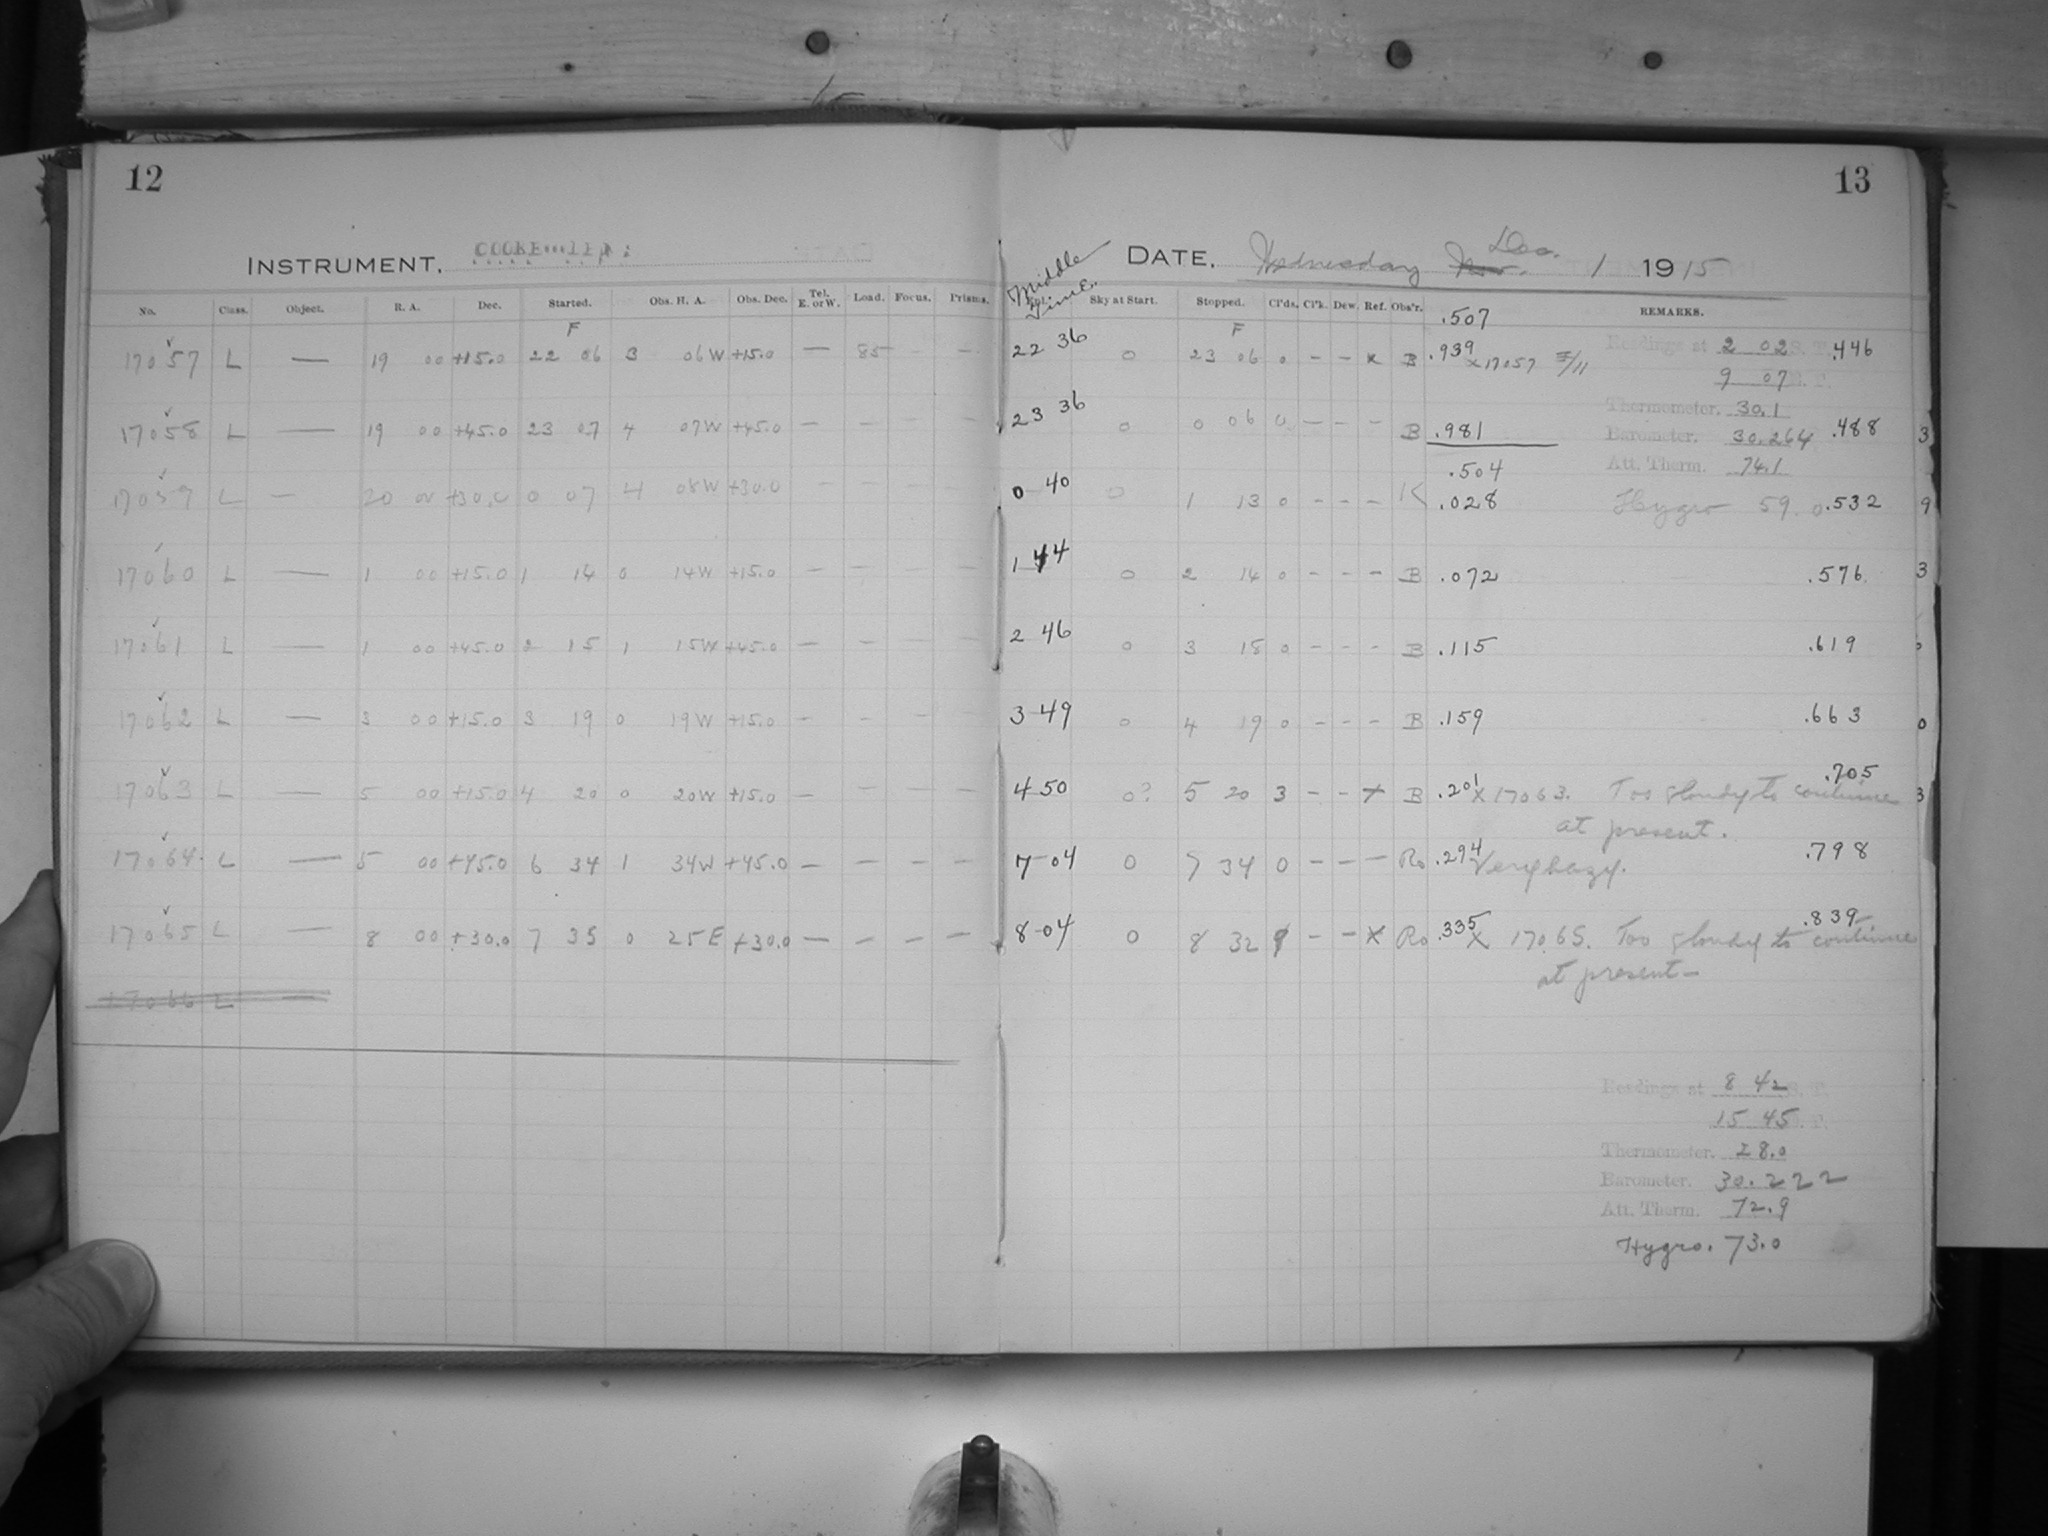 12
13
INSTRUMENT. COOKE
DATE. Wednesday Nov. Dec. 1 1915
No. Class. Object. R. A. Dec. Started. Obs. H. A. Obs. Dec. Tel. E. or W. Load. Focus. Prisms. Middle Time. Sky at Start. Stopped. Cl'ds. Cl'k. Dew. Ref. Obs'r. .507 REMARKS.
F F
17057 L — 19 00 +15.0 22 06 3 06W +15.0 — 85 — 22 36 0 23 06 0 - - x B .939 x 17057 Readings at 2 02 S. T. .446
9 07
Thermometer. 30.1
17058 L — 19 00 +45.0 23 07 4 07W +45.0 — — — — 23 36 0 0 06 0 — - - B .981 Barometer. 30.264 .488 3
.504 Att. Therm. 74.1
17059 L — 20 00 +30.0 0 07 4 08W +30.0 — — — — 0 40 0 1 13 0 - - - K .028 Hygro 59.0 .532 9
17060 L — 1 00 +15.0 1 14 0 14W +15.0 — — — — 1 44 0 2 14 0 - - - B .072 .576 3
17061 L — 1 00 +45.0 2 15 1 15W +45.0 — — — — 2 46 0 3 18 0 - - - B .115 .619
17062 L — 3 00 +15.0 3 19 0 19W +15.0 — — — — 3-49 0 4 19 0 - - - B .159 .663 0
17063 L — 5 00 +15.0 4 20 0 20W +15.0 — — — — 4-50 0? 5 20 3 - - x B .201 x 17063. Too cloudy to continue .705 3
at present.
17064 L — 5 00 +45.0 6 34 1 34W +45.0 — — — — 7-04 0 7 34 0 - - - Ro .294 Very hazy. .798
17065 L — 8 00 +30.0 7 35 0 25E +30.0 — — — — 8-04 0 8 32 9 - - x Ro .335 x 17065. Too cloudy to continue .839
at present —
17066 L —
Readings at 8 42 S. T.
15 45
Thermometer. 28.0
Barometer. 30.222
Att. Therm. 72.9
Hygro. 73.0